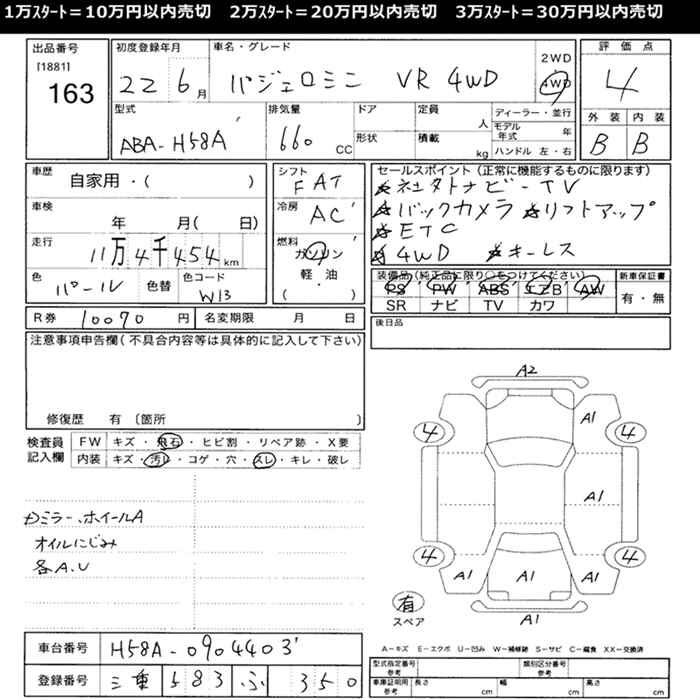 1万スタート=10万円以内売切　2万スタート=20万円以内売切　3万スタート=30万円以内売切
出品番号
[1881]
163
初度登録年月
22 6月
車名・グレード
パジェロミニ VR 4WD
2WD
4WD
評価点
4
外装 内装
B B
型式
ABA-H58A
排気量
660 CC
ドア
形状
定員 人
積載 kg
ディーラー・並行
モデル年式 年
ハンドル 左・右
車歴
自家用・( )
車検
年 月( 日)
走行
11万4千454km
色
パール
色替
色コード
W13
シフト
FAT
冷房
AC
燃料
ガソリン
軽油
・
( )
セールスポイント(正常に機能するものに限ります)
☆社外ナビ-TV
☆バックカメラ ☆リフトアップ
☆ETC
☆4WD ☆キーレス
装備品(純正品に限り○をつけてください)
PS PW ABS エアB AW
SR ナビ TV カワ
新車保証書
有・無
R券 10070円
名変期限 月 日
後日品
注意事項申告欄(不具合内容等は具体的に記入して下さい)
修復歴 有 〔箇所 〕
検査員記入欄
FW キズ・飛石・ヒビ割・リペア跡・X要
内装 キズ・汚れ・コゲ・穴・スレ・キレ・破レ
ミラー、ホイールA
オイルにじみ
各A.U
A2
A1
4 4
A1
4 4
A1 A1 A1
A1
有
スペア
A-キズ E-エクボ U-凹み W-補修跡 S-サビ C-腐食 XX-交換済
車台番号 H58A-0904403
登録番号 三重 583 ふ 350
型式指定番号
参考
類別区分番号
参考
車庫証明用
参考
長さ cm
幅 cm
高さ cm